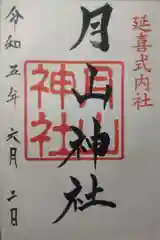 延喜式内社
月山神社
月山
神社
令和五年 六月 二日